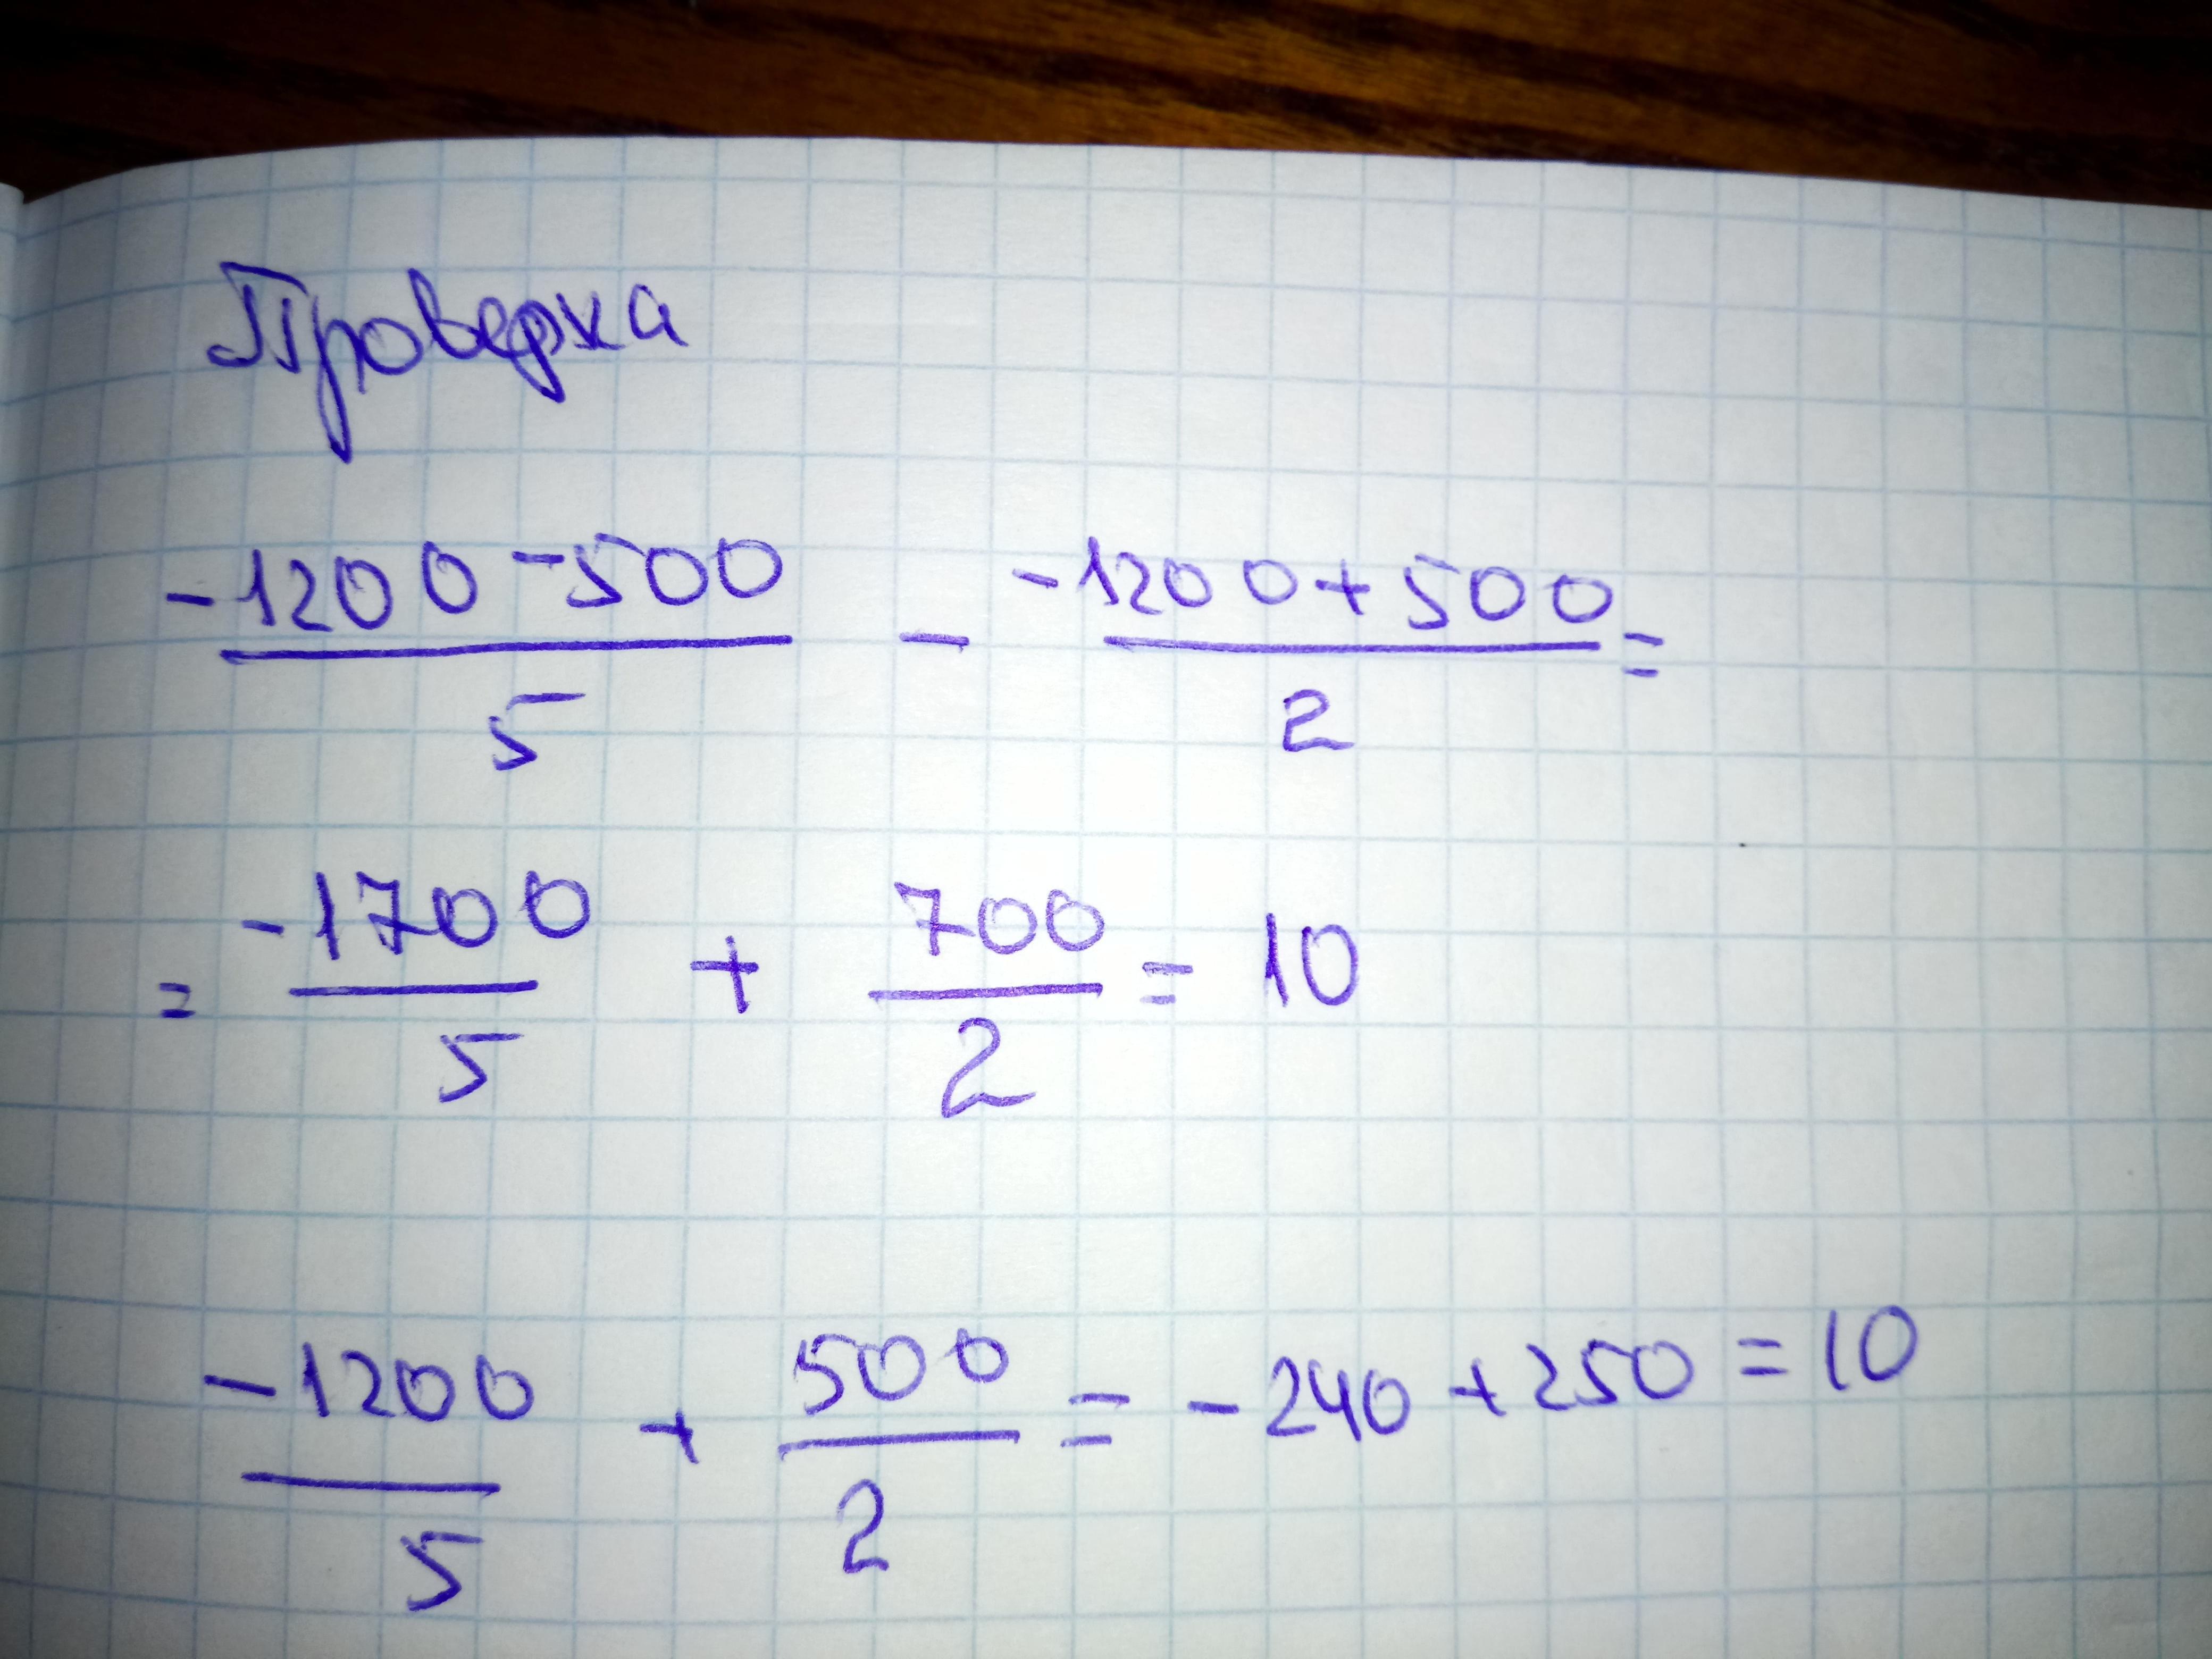 Проверка
-1200-500 / 5 - -1200+500 / 2 =
= -1700 / 5 + 700 / 2 = 10
-1200 / 5 + 500 / 2 = -240+250=10